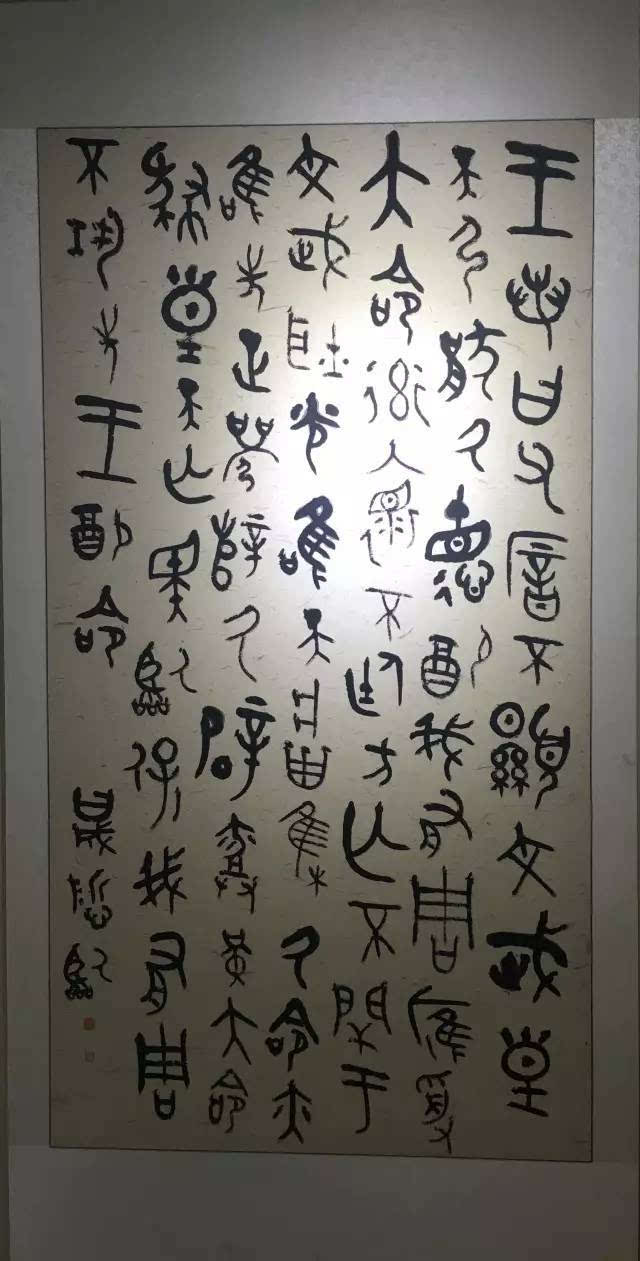 王若曰父厝不顯文武皇
天弘猒厥德配我有周膺受
大命率褱不廷方亡不閈于
文武耿光唯天將集厥命亦
唯先正襄辥厥辟爵堇大命
肆皇天亡斁臨保我有周
不巩先王配命